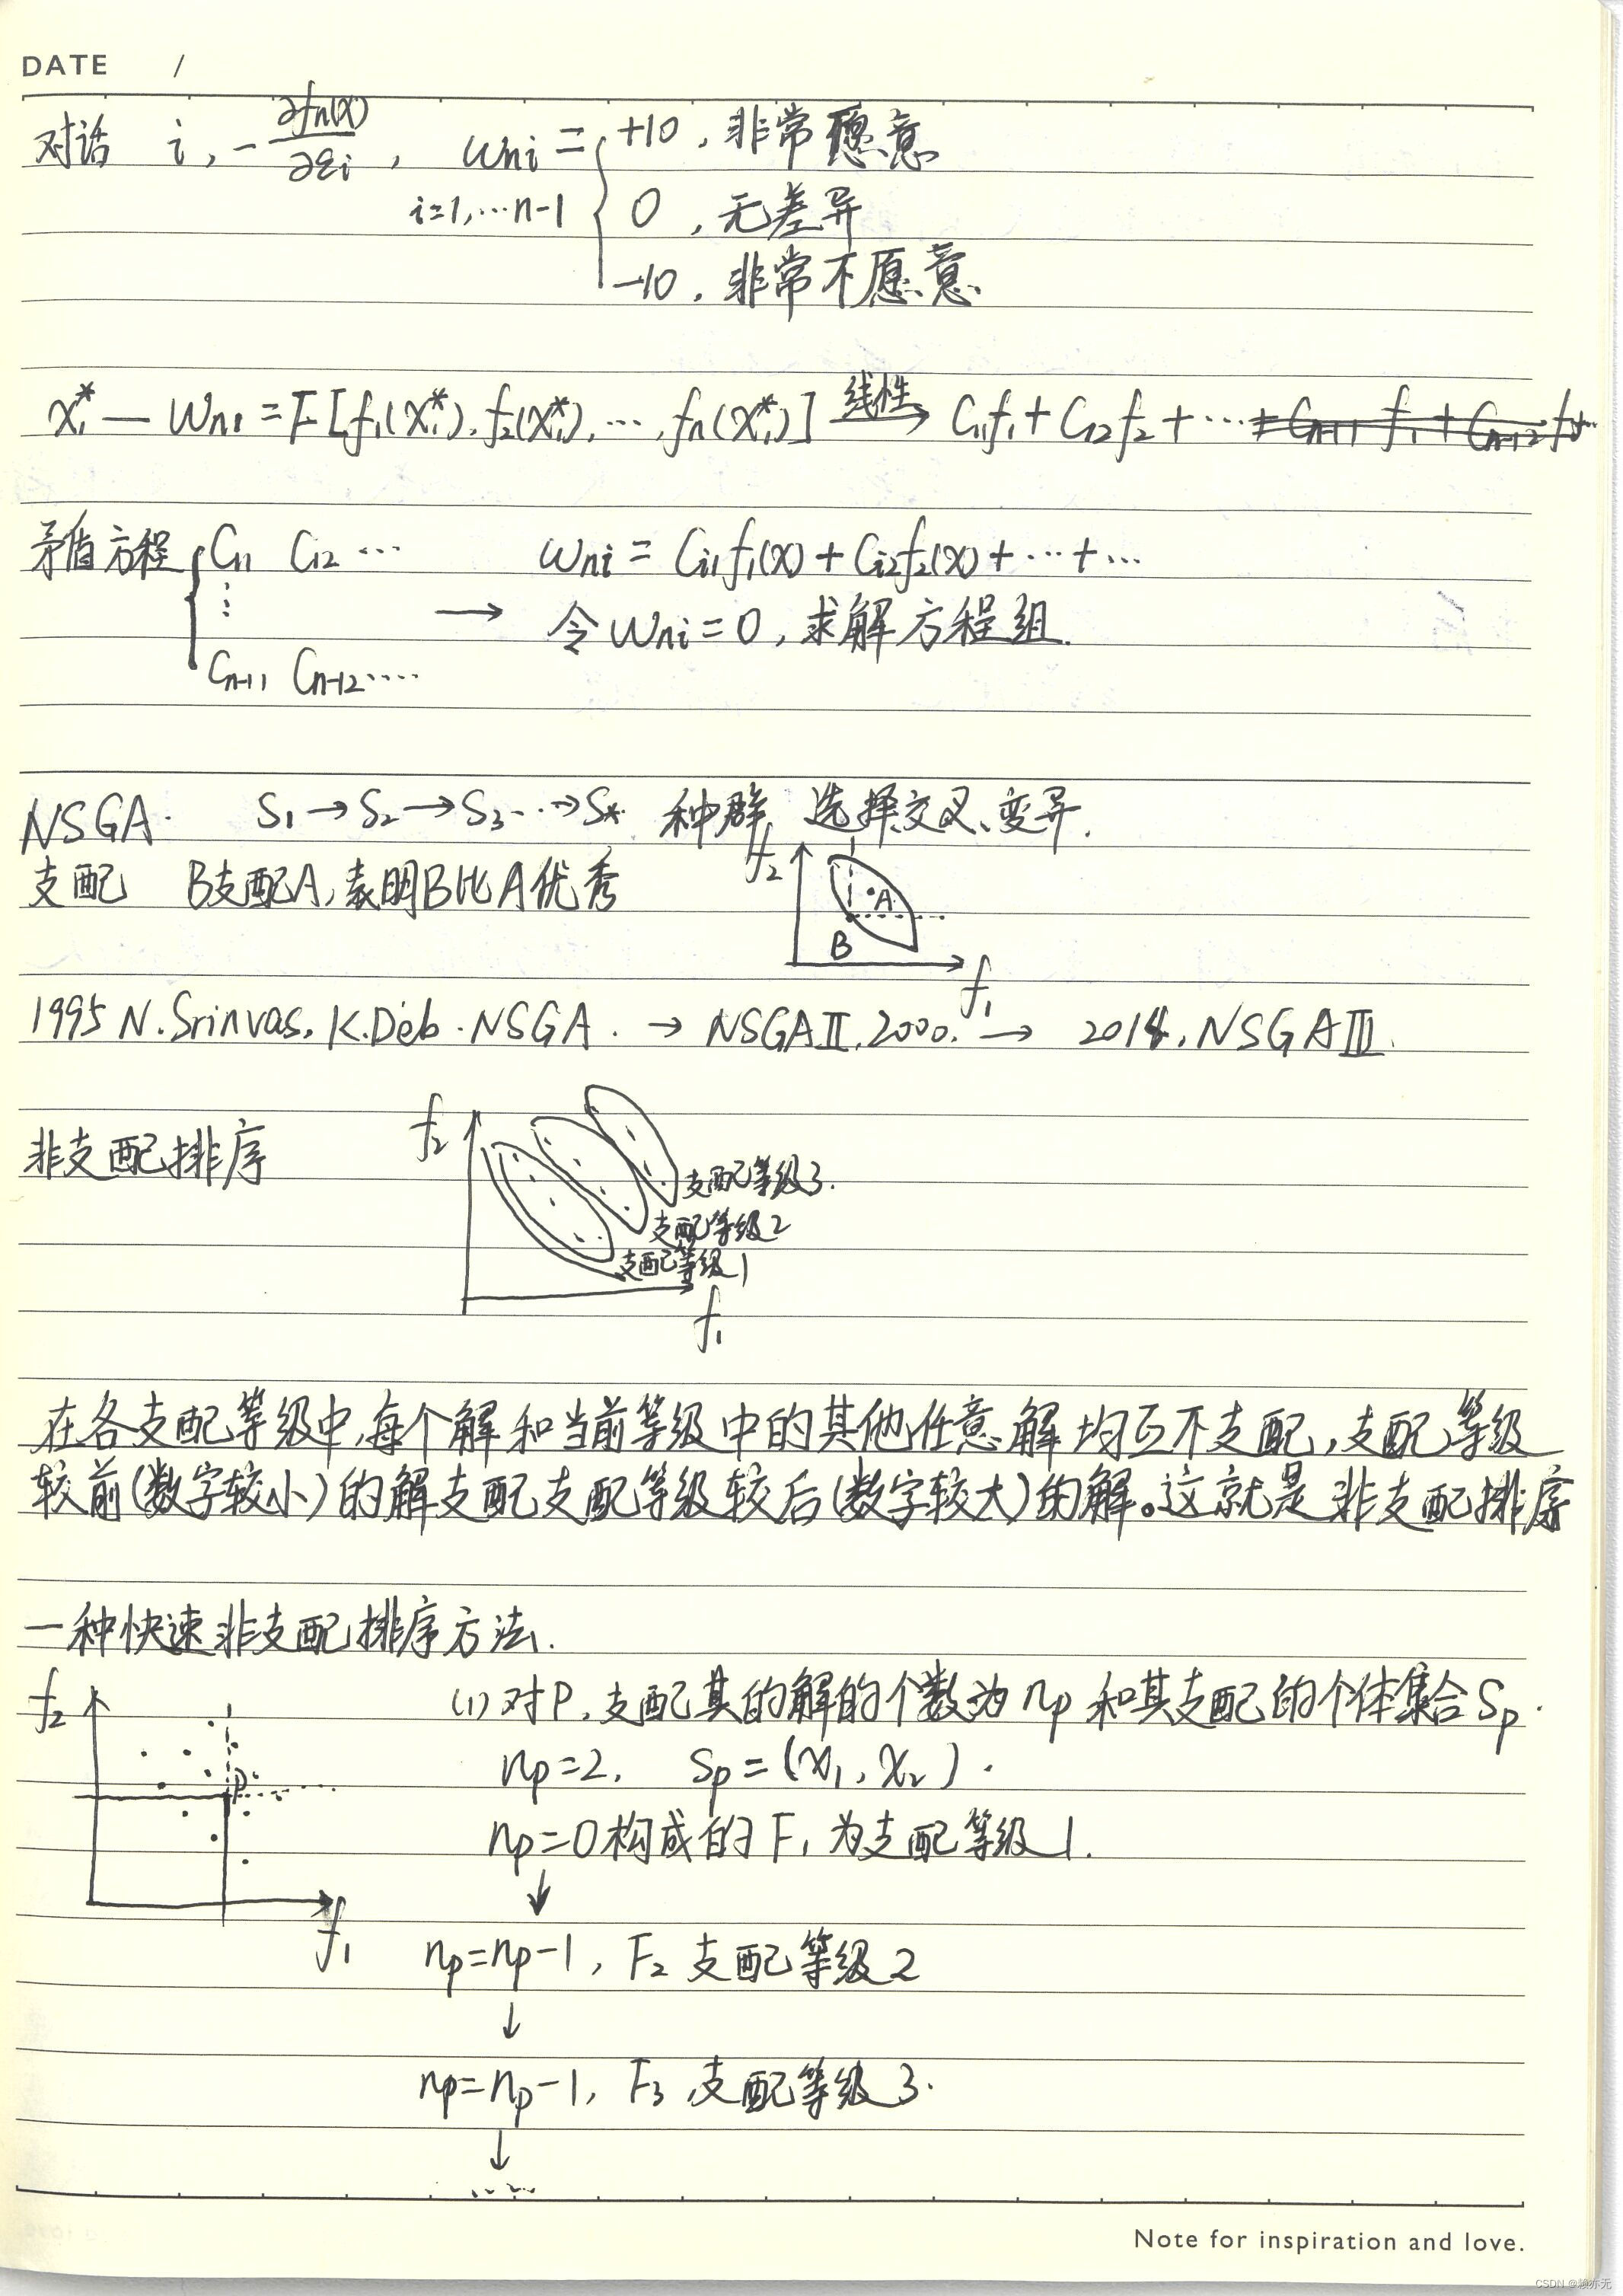 DATE /
对话 i, -∂fn(x)/∂εi , wni = { +10, 非常愿意
i=1,…n-1 0, 无差异
-10, 非常不愿意
x₁* — wn₁ = F[f₁(x₁*), f₂(x₁*), …, fn(x₁*)] 线性→ C₁₁f₁ + C₁₂f₂ + …
矛盾方程 { C₁₁ C₁₂ … wni = Ci₁f₁(x) + Ci₂f₂(x) + … + …
⋮ → 令 wni = 0, 求解方程组.
Cn-11 Cn-12 ….
NSGA. S₁→S₂→S₃…→S* 种群 选择、交叉、变异.
支配 B支配A, 表明B比A优秀
f₂
A
B
f₁
1995 N.Srinvas, K.Deb. NSGA. → NSGAⅡ, 2000. → 2014, NSGAⅢ.
非支配排序
f₂
支配等级3.
支配等级2
支配等级1
f₁
在各支配等级中,每个解和当前等级中的其他任意解均互不支配,支配等级
较前(数字较小)的解支配支配等级较后(数字较大)的解。这就是非支配排序
一种快速非支配排序方法.
f₂ (1) 对P, 支配其的解的个数为 np 和其支配的个体集合 Sp.
np=2, Sp=(x₁, x₂).
P
np=0构成的F₁为支配等级1.
↓
f₁ np=np-1, F₂ 支配等级2
↓
np=np-1, F₃ 支配等级3.
↓
……
Note for inspiration and love.
CSDN @赖亦无